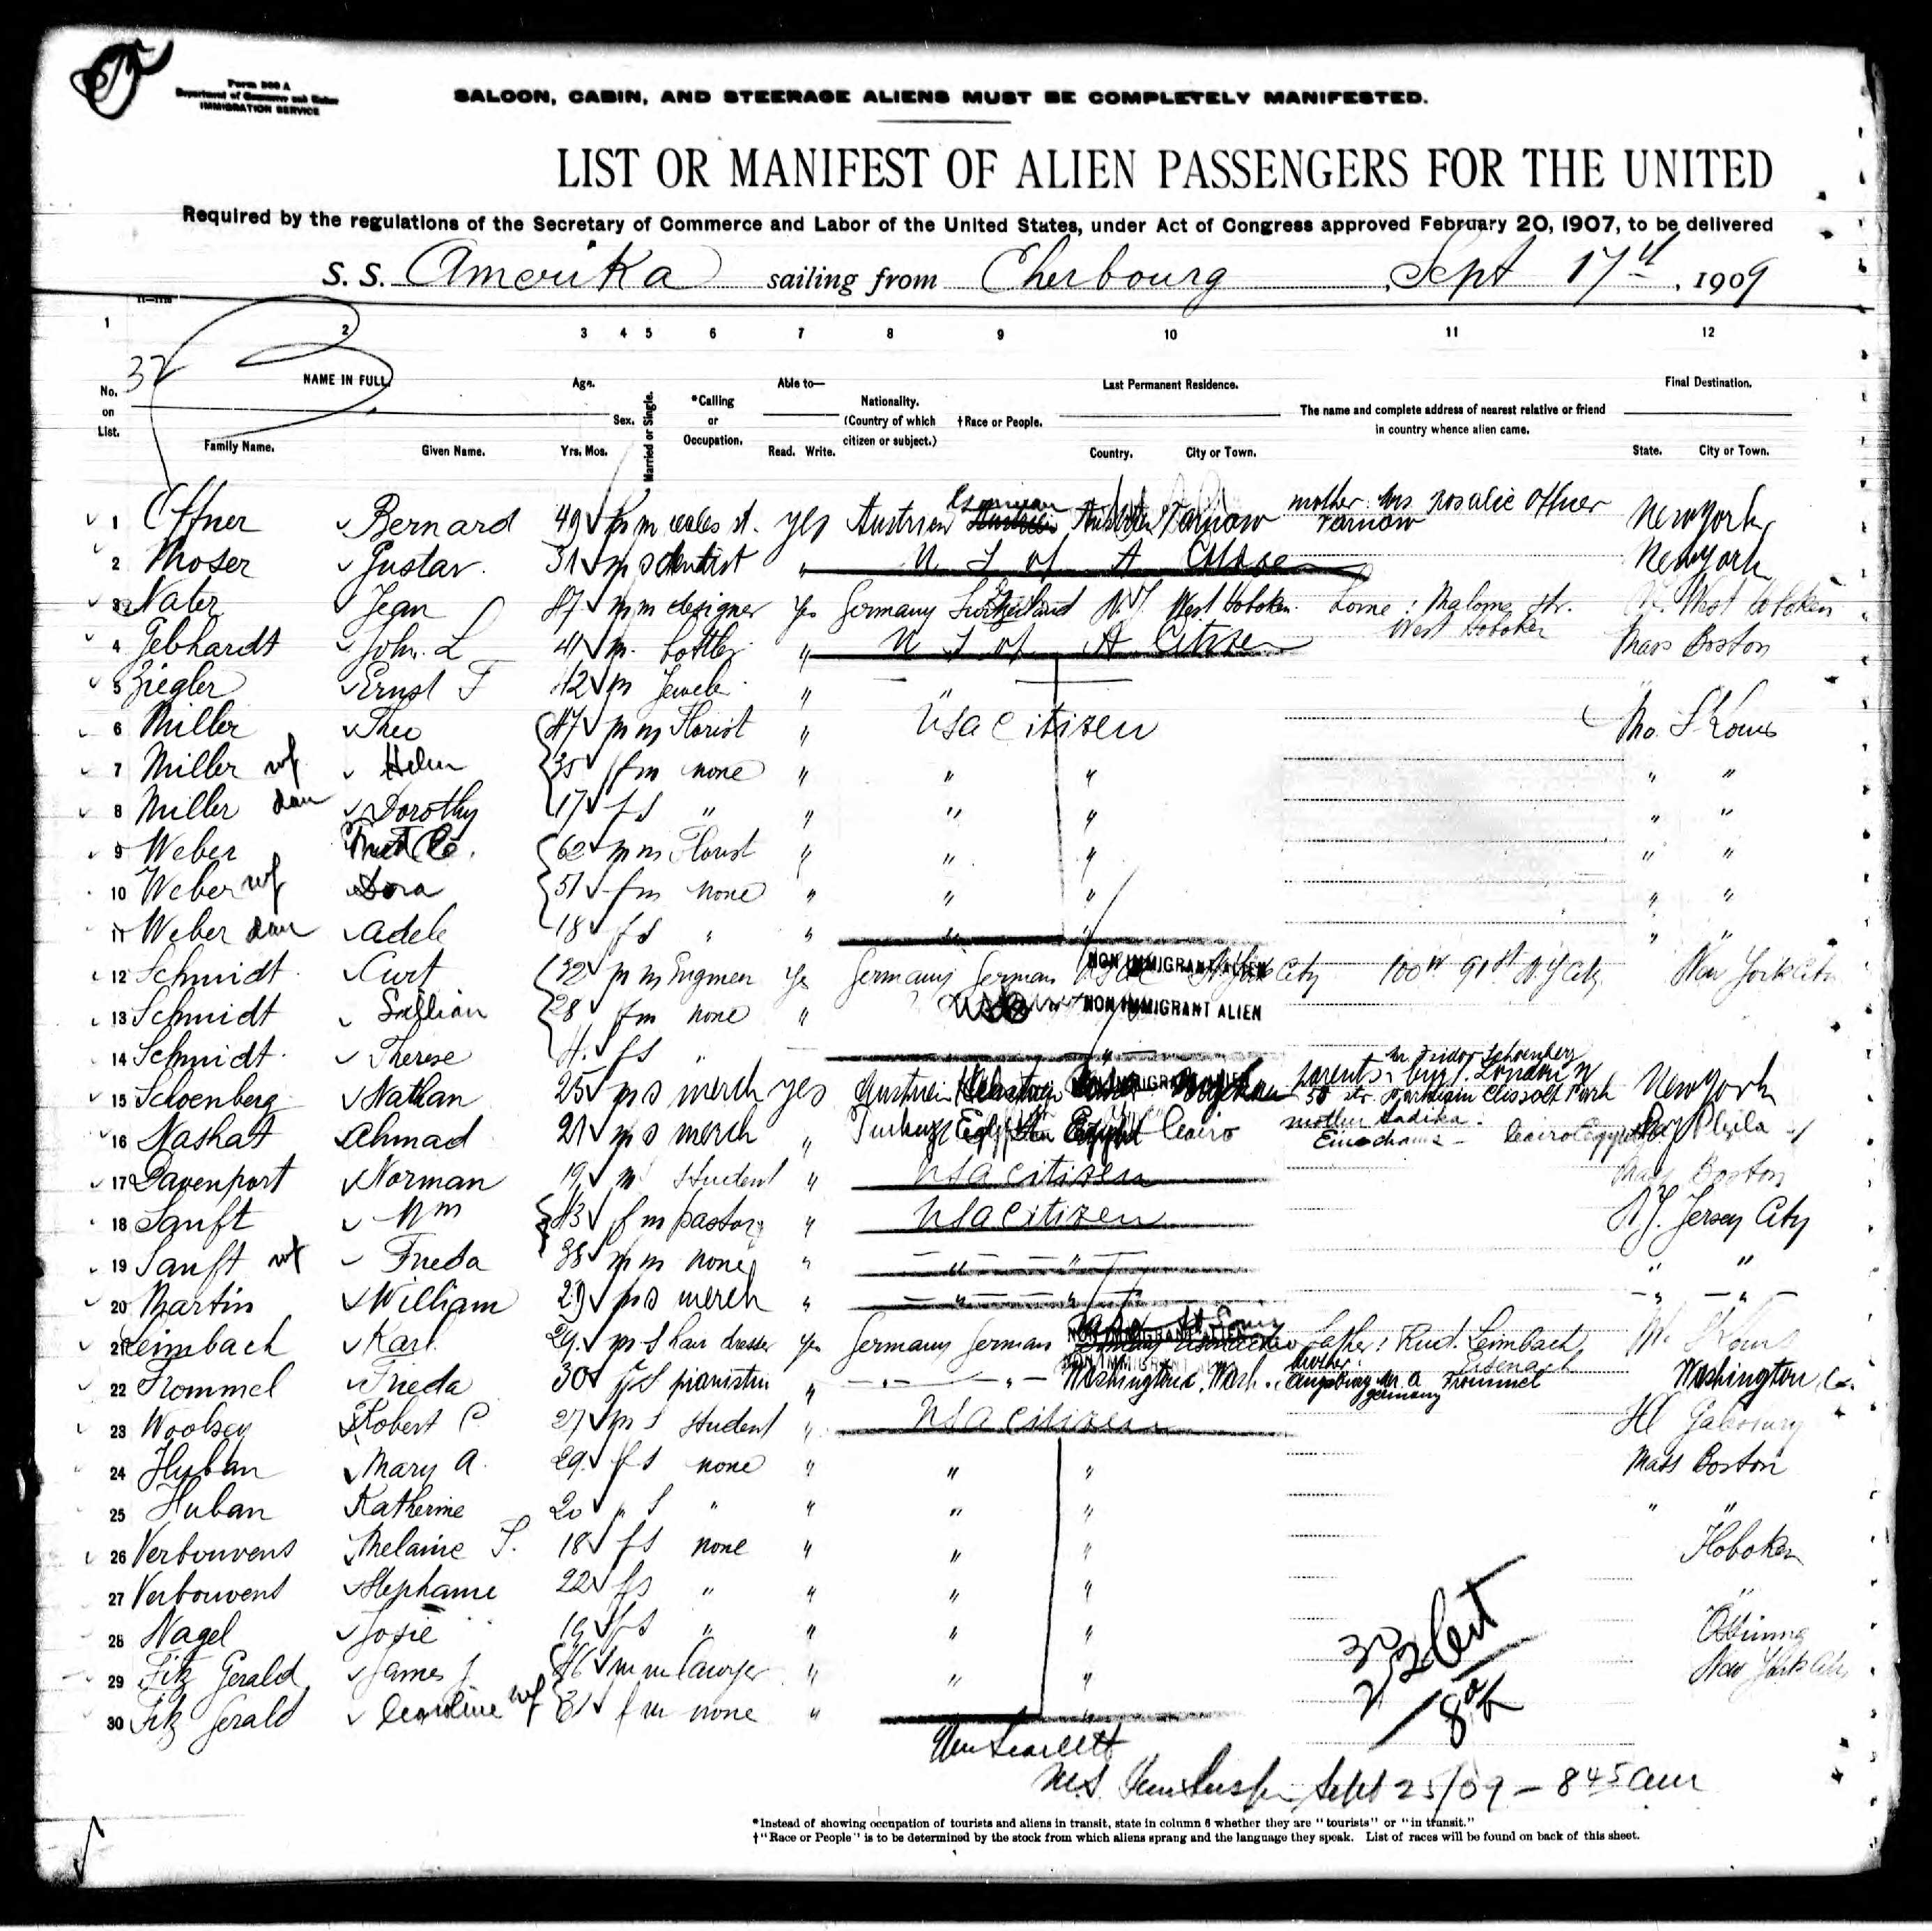 Form 500 A
Department of Commerce and Labor
IMMIGRATION SERVICE
SALOON, CABIN, AND STEERAGE ALIENS MUST BE COMPLETELY MANIFESTED.
LIST OR MANIFEST OF ALIEN PASSENGERS FOR THE UNITED
Required by the regulations of the Secretary of Commerce and Labor of the United States, under Act of Congress approved February 20, 1907, to be delivered
S. S. Amerika sailing from Cherbourg, Sept 17th, 1909
1 2 3 4 5 6 7 8 9 10 11 12
32
No. on List. NAME IN FULL Family Name. Given Name. Age. Yrs. Mos. Sex. Married or Single. *Calling or Occupation. Able to— Read. Write. Nationality. (Country of which citizen or subject.) †Race or People. Last Permanent Residence. Country. City or Town. The name and complete address of nearest relative or friend in country whence alien came. Final Destination. State. City or Town.
1 Offner Bernard 49 m m yes Austrian German Tarnow mother Mrs Rosalie Offner Tarnow New York
2 Moser Gustav. 31 m s dentist " U S of A New York
3 Nater Jean 47 m m designer yes Germany Switzerland N.J. West Hoboken West Hoboken West Hoboken
4 Gebhardt John. L 41 m. " U S of A Mass Boston
5 Ziegler Ernst F 42 m " " "
6 Miller Theo 47 m m Florist " USA Citizen Mo. St Louis
7 Miller wf Helen 35 f m none " " " " "
8 Miller dau Dorothy 17 f s " " " " " "
9 Weber 62 m m Florist " " " " "
10 Weber wf Dora 51 f m none " " " " "
11 Weber dau Adele 18 f s " " " " " "
12 Schmidt Curt 32 m m yes Germany German NON IMMIGRANT ALIEN N York City 100 W 91st N Y City New York City
13 Schmidt Lillian 28 f m none " NON IMMIGRANT ALIEN
14 Schmidt. Therese 4. f s " "
15 Schoenberg Nathan 25 m s merch yes parents: Mr. Isidor Schoenberg London N New York
16 Nashat Ahmad 21 m s merch " Turkey Egypt Cairo mother Sadika Cairo Egypt Phila
17 Davenport Norman 19 m student " USA Citizen Mass Boston
18 Sanft Wm 43 f m pastor " USA Citizen N.J. Jersey City
19 Sanft wf Frieda 38 m m none " " " " "
20 Martin William 29 m s merch " " " " "
21 Leimbach Karl 29. m s hair dresser yes Germany German St Louis NON IMMIGRANT ALIEN father: Rud. Leimbach Eisenach St Louis
22 Trommel Frieda 30 f s " " NON IMMIGRANT Washington, Wash. Mother: Germany Washington
23 Woolsey Robert C. 27 m s student " USA Citizen Ill
24 Huban Mary A. 29. f s none " " " Mass Boston
25 Huban Katherine 20 " s " " " " " "
26 Verbouvens Melanie S. 18 f s none " " " Hoboken
27 Verbouvens Stephanie 22 f s " " " " "
28 Nagel Josie 19 f s " " " "
29 Fitz Gerald James J 46 m m lawyer " " " New York City
30 Fitz Gerald Caroline wf 31 f m none " "
30
Sept 25/09 - 8 45 am
*Instead of showing occupation of tourists and aliens in transit, state in column 6 whether they are "tourists" or "in transit."
†"Race or People" is to be determined by the stock from which aliens sprang and the language they speak. List of races will be found on back of this sheet.